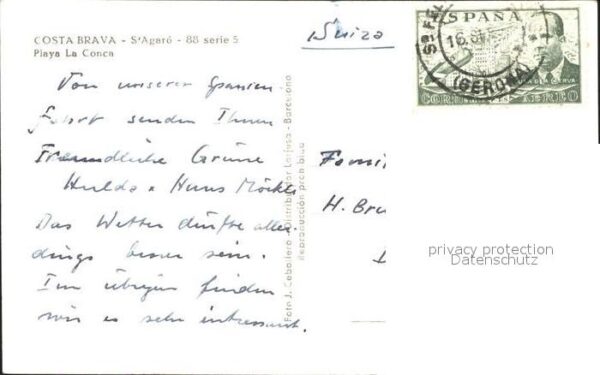 COSTA BRAVA - S'Agaró - 88 serie 5
Playa La Conca
Von unserer Spanien-
fahrt senden Ihnen
Freundliche Grüsse
Hulda & Hans Möckli
Das Wetter dürfte aller-
dings besser sein.
Im übrigen finden
wir es sehr interessant.
Foto J. Caballero - Distribuidor Larjusa - Barcelona
Reproducción prohibida
Suiza
ESPAÑA
16
(GERONA)
CORREO AEREO
Famil
H. Bru
privacy protection
Datenschutz